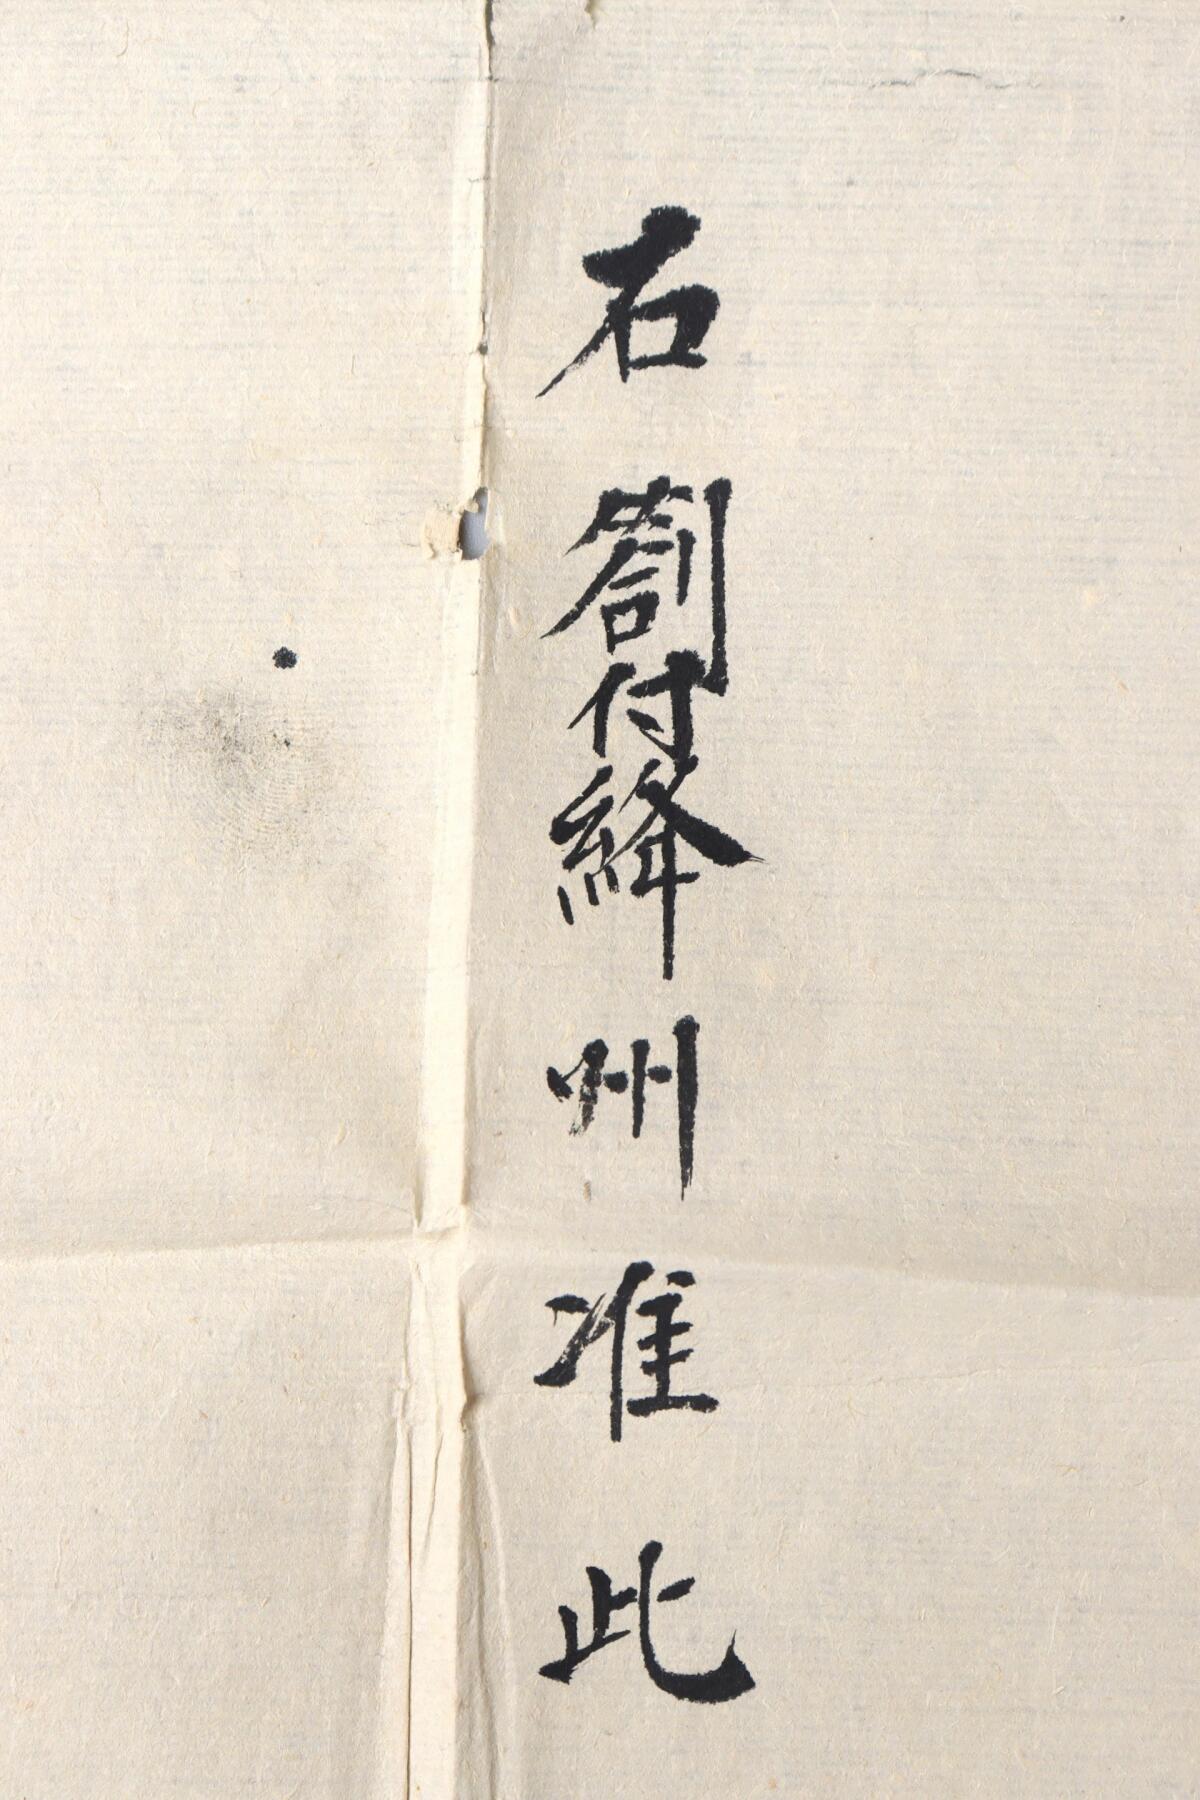 石劄付絳州准此